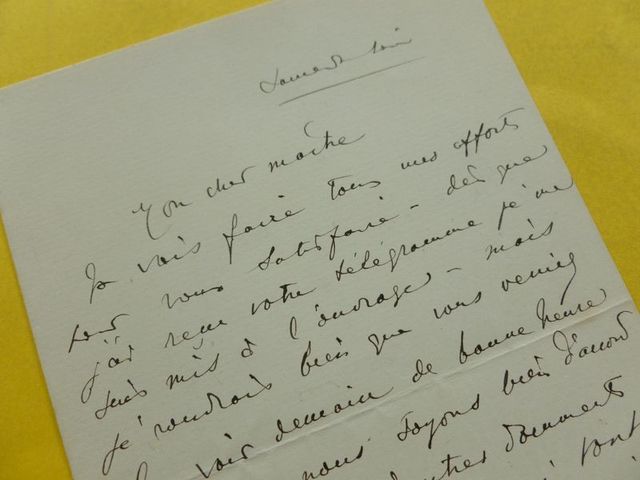 Samedi soir
Mon cher maître
Je vais faire tous mes efforts
pour vous satisfaire - dès que
j'ai reçu votre télégramme je me
suis mis à l'ouvrage - mais
je voudrais bien que vous veniez
voir demain de bonne heure
nous soyons bien d'accord
autres documents
sont